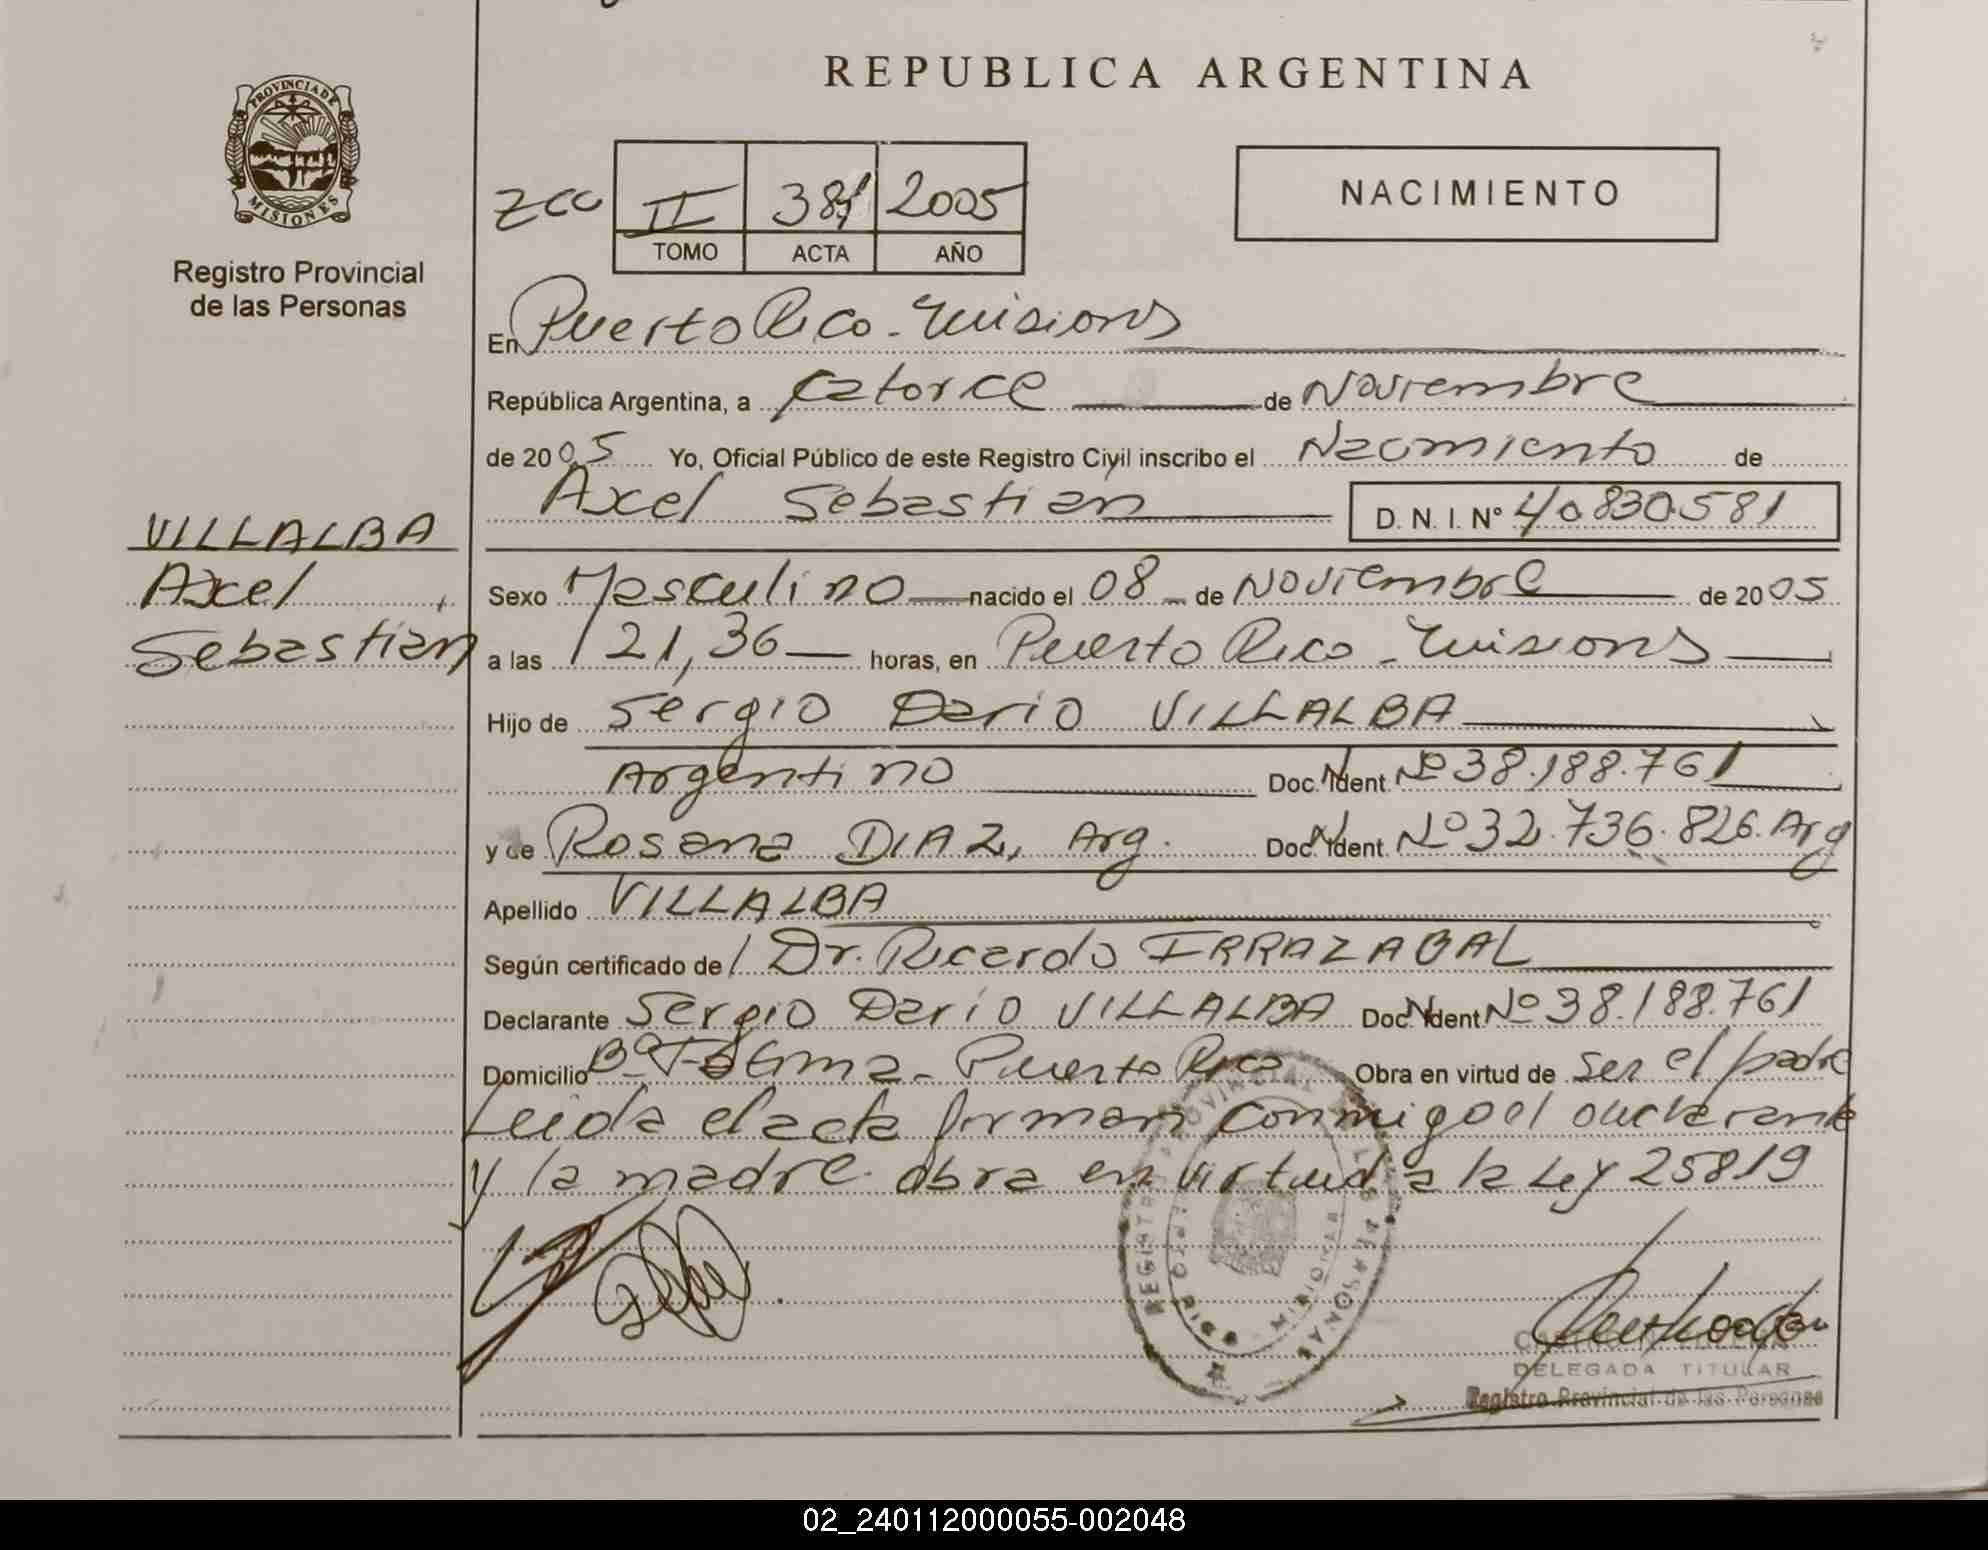 REPUBLICA ARGENTINA
PROVINCIA DE
MISIONES
Registro Provincial
de las Personas
NACIMIENTO
zcc II 381 2005
TOMO ACTA AÑO
En Puerto Rico - Misiones
República Argentina, a Catorce de Noviembre
de 2005 Yo, Oficial Público de este Registro Civil inscribo el Nacimiento de
Axel Sebastian D. N. I. N° 40.830.581
VILLALBA
Axel
Sebastián
Sexo Masculino nacido el 08 de Noviembre de 2005
a las 21,36 horas, en Puerto Rico - Misiones
Hijo de Sergio Dario VILLALBA
Argentino Doc. Ident. Nº 38.188.761
y de Rosana DIAZ, Arg. Doc. Ident. Nº 32.736.826. Arg
Apellido VILLALBA
Según certificado de Dr. Ricardo IRRAZABAL
Declarante Sergio Darío VILLALBA Doc. Ident. Nº 38.188.761
Domicilio Bº Fátima - Puerto Rico Obra en virtud de ser el padre
Leida el acta firman conmigo el declarante
y la madre. obra en virtud a la Ley 25819
DELEGADA TITULAR
Registro Provincial de las Personas
02_240112000055-002048